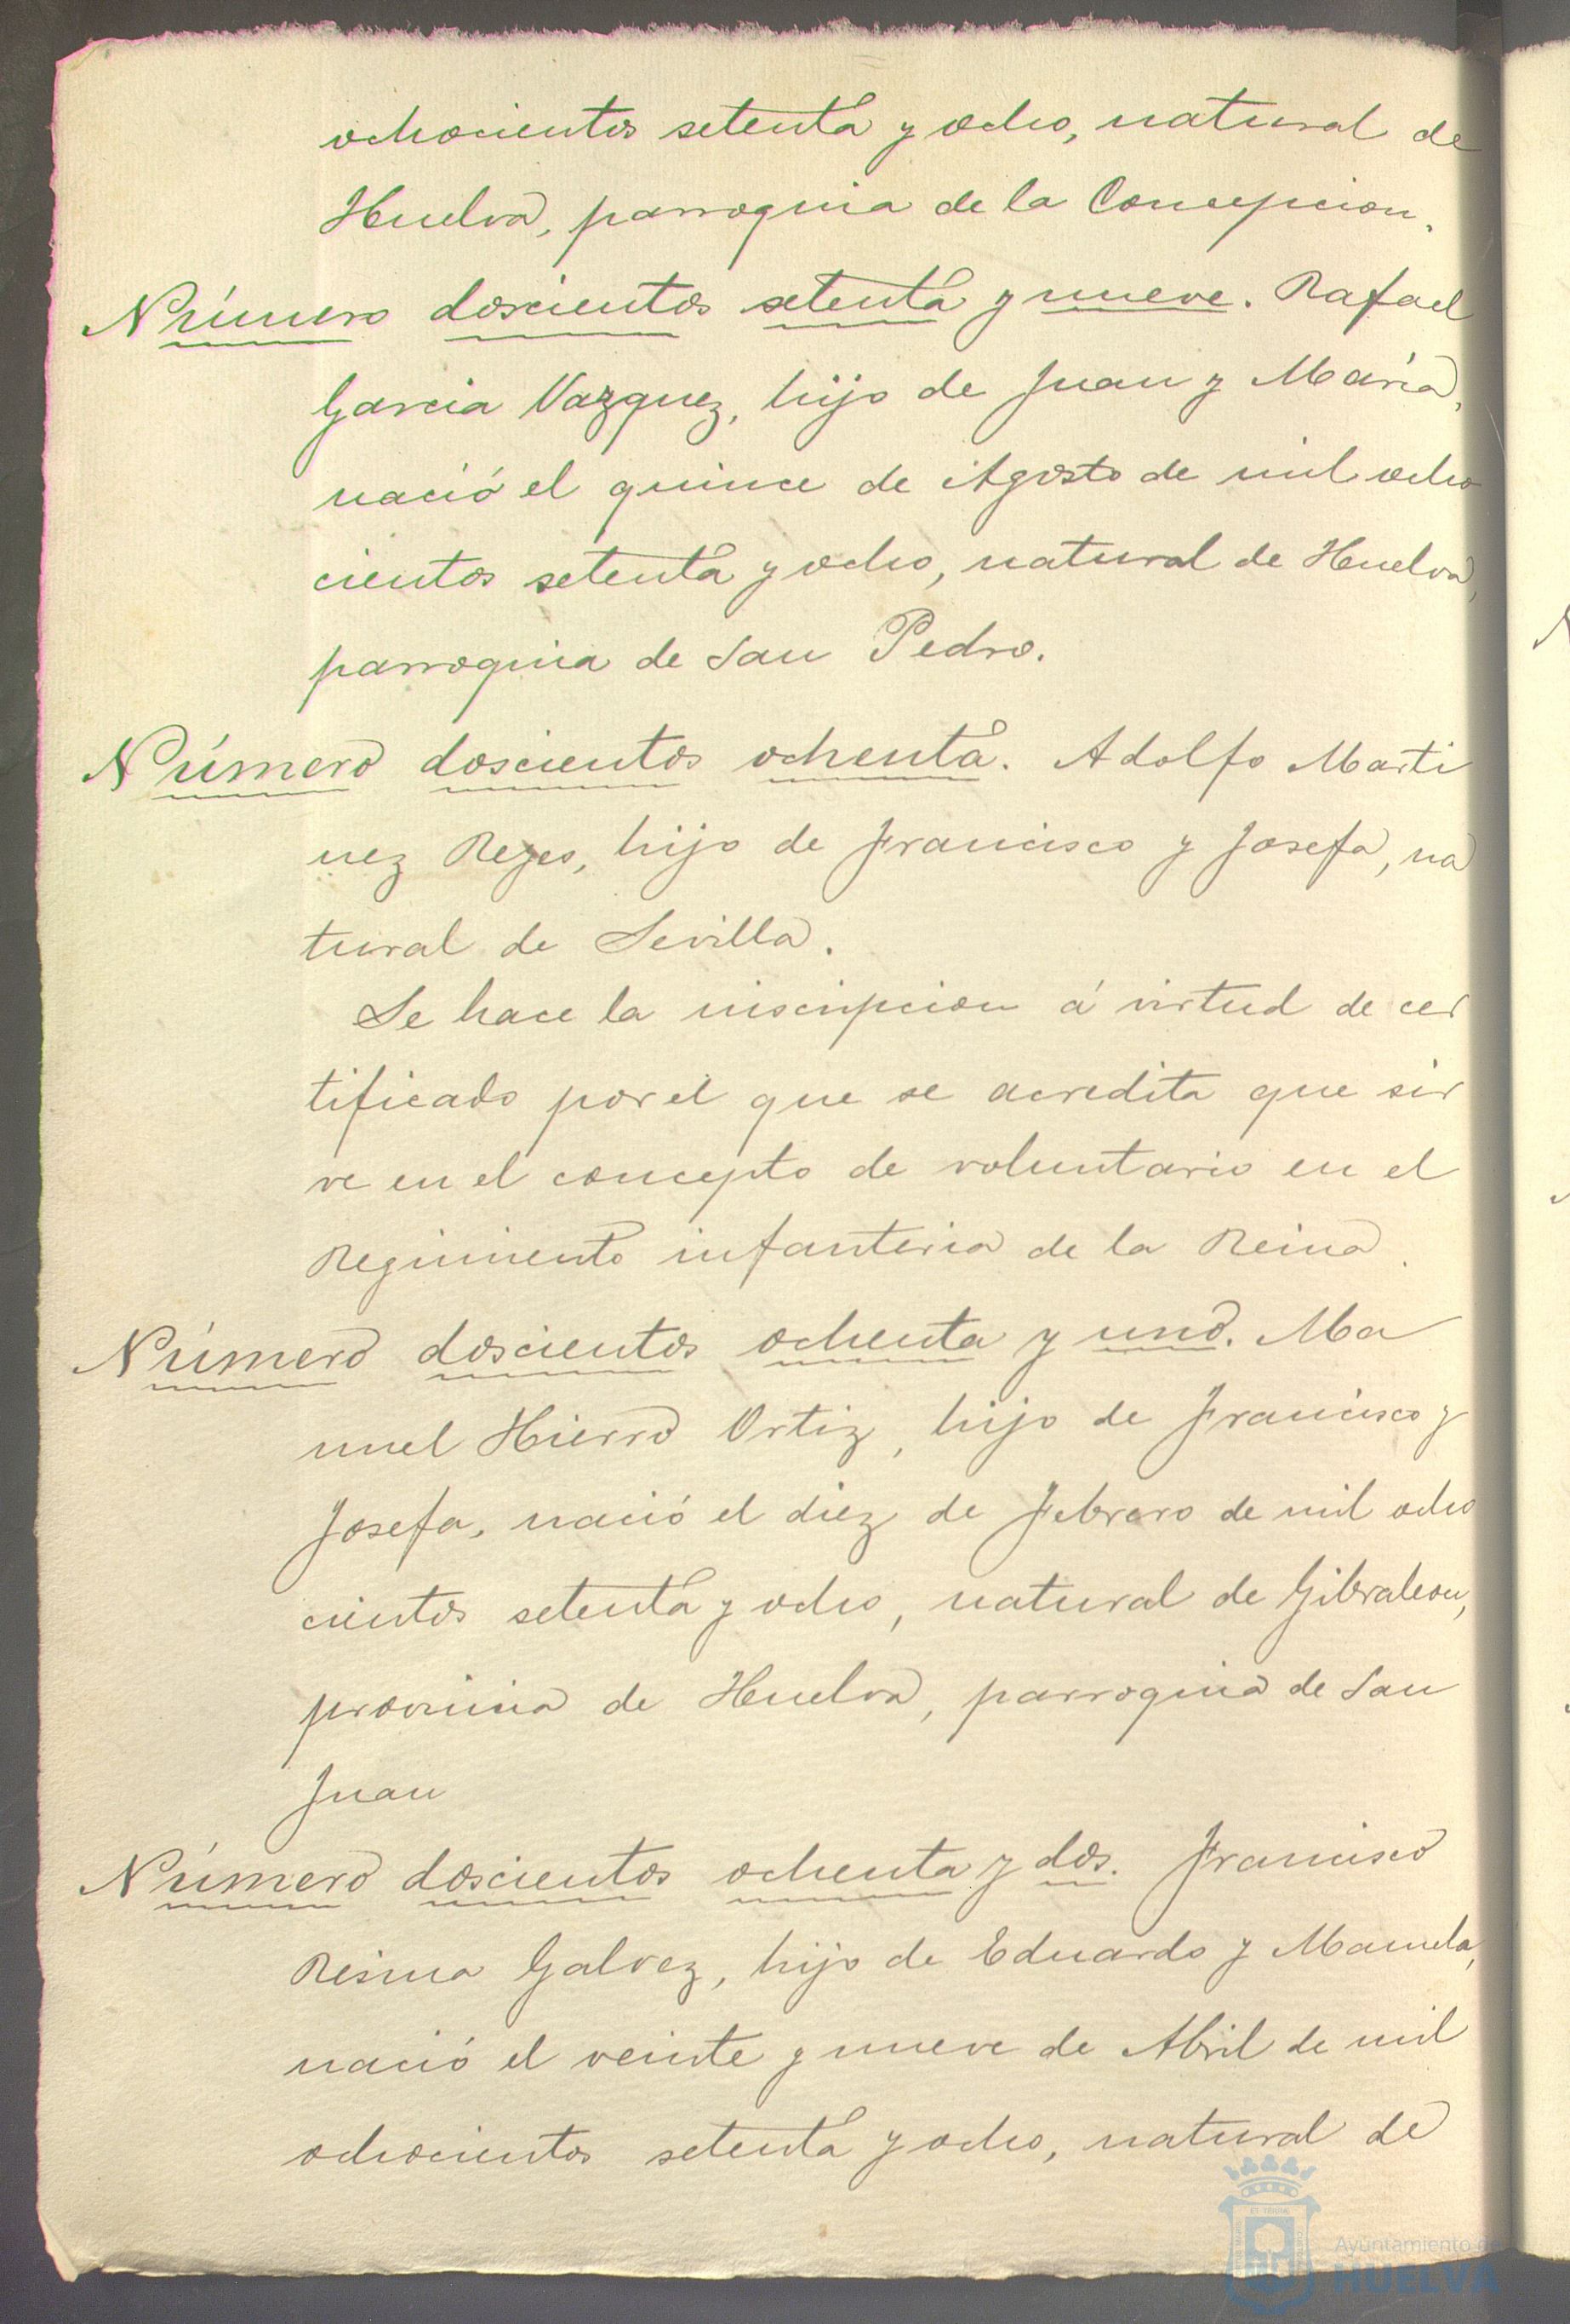 ochocientos setenta y ocho, natural de
Huelva, parroquia de la Concepcion.
Número doscientos setenta y nueve. Rafael
Garcia Vazquez, hijo de Juan y María,
nació el quince de Agosto de mil ocho
cientos setenta y ocho, natural de Huelva,
parroquia de San Pedro.
Número doscientos ochenta. Adolfo Marti
nez Reyes, hijo de Francisco y Josefa, na
tural de Sevilla.
Se hace la inscripcion á virtud de cer
tificado por el que se acredita que sir
ve en el concepto de voluntario en el
Regimiento infanteria de la Reina.
Número doscientos ochenta y uno. Ma
nuel Hierro Ortiz, hijo de Francisco y
Josefa, nació el diez de Febrero de mil ocho
cientos setenta y ocho, natural de Gibraleon,
provincia de Huelva, parroquia de San
Juan
Número doscientos ochenta y dos. Francisco
Galvez, hijo de Eduardo y Manuela,
nació el veinte y nueve de Abril de mil
ochocientos setenta y ocho, natural de
Ayuntamiento de
HUELVA